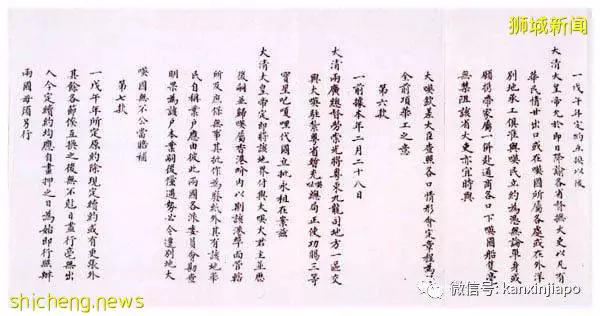 狮城新闻
一戊午年定約互換以後
大清大皇帝允於即日降諭各省督撫大吏以凡有
華民情甘出口或在𠸄國所屬各處或在外洋
別地承工俱准與𠸄民立約為憑無論單身或
願攜帶家屬一併赴通商各口下𠸄國船隻毫
無禁阻該省大吏亦宜時與
大𠸄欽差大臣查照各口情形會定章程為
全前項華工之意
第六款
一前據本年二月二十八日
大清兩廣總督勞崇光將粵東九龍司地方一區交
與大𠸄駐紮粵省暫充𠸄總局正使功賜三等
寶星吧嗄哩代國立批永租在案茲
大清大皇帝定即將該地界付與大𠸄大君主並歷
後嗣並歸𠸄屬香港界內以期該港埠面管轄
所及庶保無事其批作為廢紙外其有該地華
民自稱業戶應由彼此兩國各派委員會勘查
明果為該戶本業嗣後倘遇勢必令遷別地大
𠸄國無不公當賠補
第七款
一戊午年所定原約除現定續約或有更張外
其餘各節俟互換之後無不尅日盡行毫無出
入今定續約均應自畫押之日為始即行照辦
兩國毋須另行
shicheng.news
微信号: kanxinjiapo